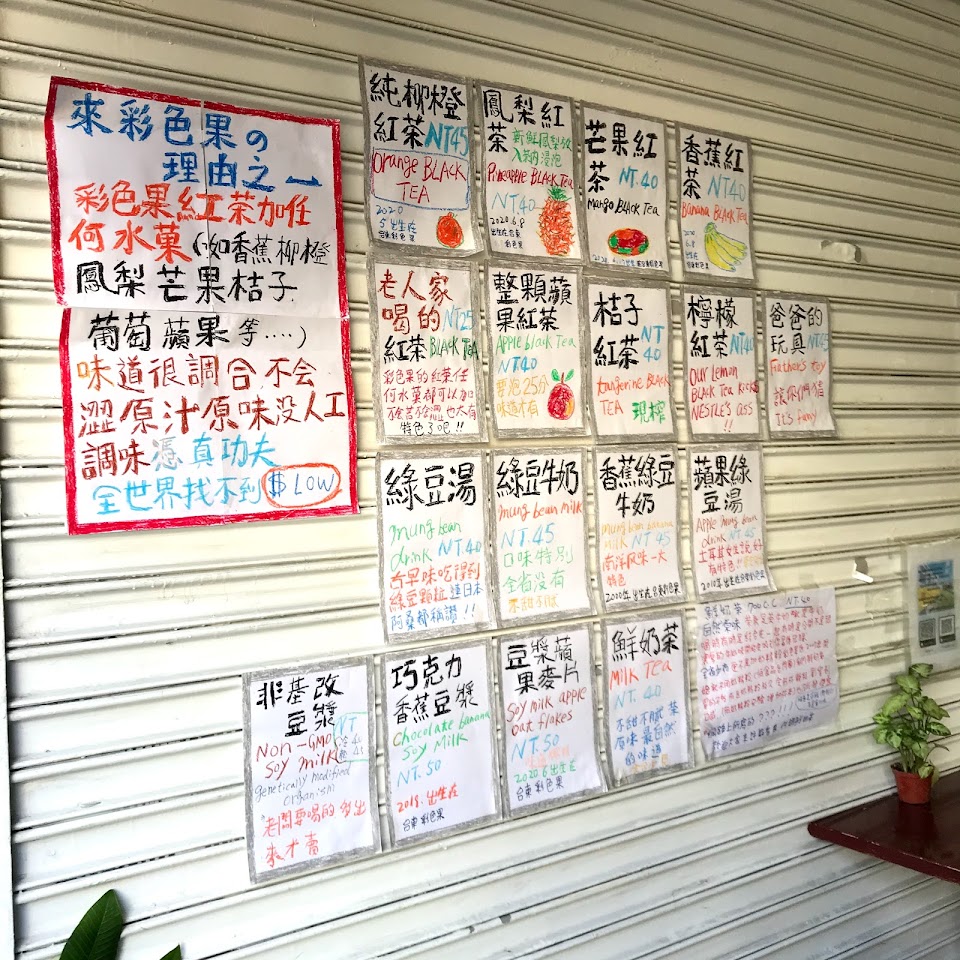 來彩色果の
理由之一
彩色果紅茶加任
何水菓(如香蕉柳橙
鳳梨芒果桔子
葡萄蘋果等....)
味道很調合不会
澀原汁原味没人工
調味憑真功夫
全世界找不到$LOW
純柳橙
紅茶NT45
Orange BLACK
TEA
2020
5出生在
台東彩色果
鳳梨紅
茶新鮮鳳梨放
入鍋浸泡
Pineapple BLACK Tea
NT40
2020.6.8
出生在台東
彩色果
芒果紅
茶NT.40
Mango BLACK Tea
香蕉紅
茶NT40
Banana BLACK Tea
2020
6.8
出生在
台東彩
色果
老人家
喝的NT25
紅茶BLACK TEA
彩色果的紅茶任
何水菓都可以加
不会苦不会澀也太有
特色了吧!!
整顆蘋
果紅茶
Apple black Tea
NT40
要泡25分
味道才有
桔子NT
紅茶40
tangerine BLACK
TEA 現榨
檸檬
紅茶NT40
OUr Lemon
BLACK TEA KicKS
NESTLE's ass
!!
爸爸的
玩具NT45
Father's Toy
讓你們猜
It's funny
綠豆湯
mung bean
drink NT.40
古早味吃得到
綠豆顆粒連日本
阿桑都稱讚!!
綠豆牛奶
mung bean milk
NT.45
口味特別
全省没有
不甜不膩
香蕉綠豆
牛奶
mung bean banana
milk NT45
南洋风味一大
特色
2000年出生在台東彩色果
蘋果綠
豆湯
Apple mung bean
drink NT45
土耳其女生說好
有特色!!
2010年出生在台東彩色果
非基改
豆漿NT
Non-GMO
Soy milk
genetically modified
organism
老闆要喝的多出
來才賣
巧克力
香蕉豆漿
Chocolate banana
Soy Milk
NT.50
2018.出生在
台東彩色果
豆漿蘋
果麥片
Soy milk apple
oat flakes
NT.50
2020 6出生在
台東彩色果
鮮奶茶
MILK TEA
NT.40
不甜不膩茶
原味最自然
的味道
鮮奶茶700C.C. NT.40